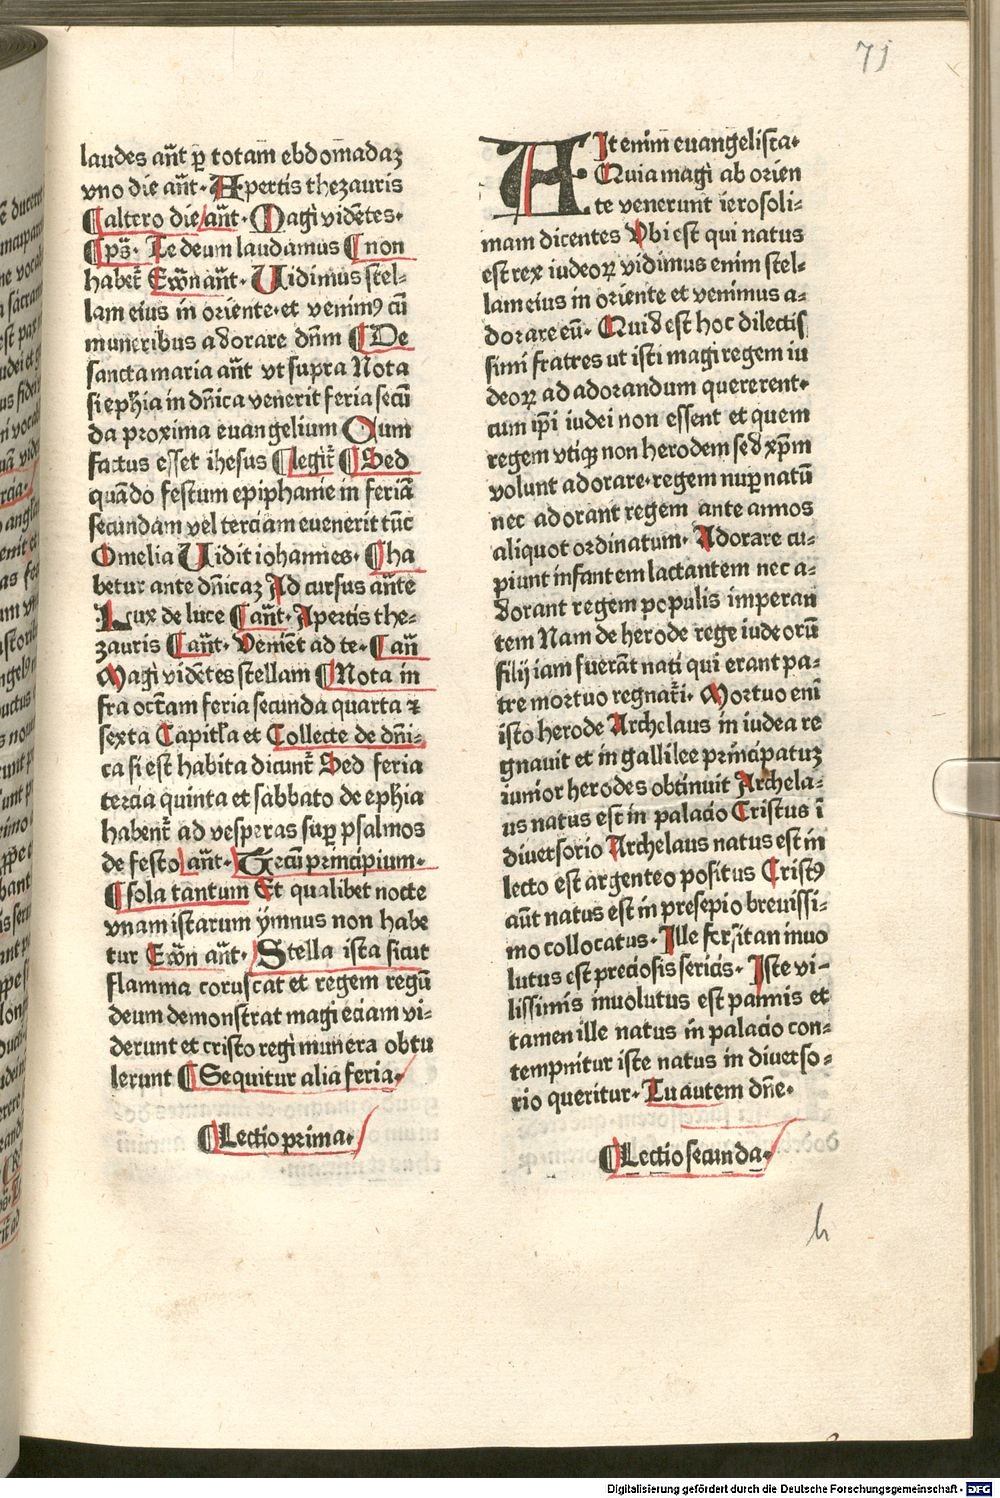 71
laudes an̄t p̲ totam̄ ebdom̄adaꝫ
vno die an̄t· Apertis thezauris
¶altero die an̄t· Magi viden̄tes·
¶ps̄· Te deum laudamus ¶non
habet̄ Ewn̄ an̄t· Uidimus stel⸗
lam eius in oriente·et venimꝰ cū
muneribus adorare dn̄m ¶De
sancta maria an̄t vt supra Nota
si ephīa in dn̄ica venerit feria secū
da proxima euangelium Qum
factus esset ihesus ¶legit̄ ¶Sed
quādo festum epiphanie in feriā
secundam vel terciam euenerit tūc
Omelia Uidit iohannes· ¶ha
betur ante dn̄icaꝫ Ad cursus an̄te
Lux de luce ¶an̄t· Apertis the⸗
zauris ¶an̄t· Venien̄t ad te· ¶an̄
Magi vidētes stellam ¶Nota in
fra oct̄am feria secunda quarta ⁊
sexta Capitl̄a et Collecte de dn̄i⸗
ca si est habita dicunt̄ Sed feria
tercia quinta et sabbato de ephīa
habent̄ ad vesperas sup̲ psalmos
de festo an̄t· Trecū principium·
¶sola tantum Et qualibet nocte
vnam istarum ymnus non habe
tur Ewn̄ an̄t· Stella ista sicut
flamma coruscat et regem regū
deum demonstrat magi eciam vi⸗
derunt et cristo regi munera obtu
lerunt ¶Sequitur alia feria·
¶Lectio prima·
AIt enim euangelista·
Quia magi ab orien
te venerunt ierosoli⸗
mam dicentes Vbi est qui natus
est rex iudeoꝝ vidimus enim stel⸗
lam eius in oriente et venimus a⸗
dorare eū· Quid est hoc dilectis
simi fratres ut isti magi regem iu
deoꝝ ad adorandum quererent·
cum ip̄i iudei non essent et quem
regem vtiqꝫ non herodem sed xp̄m
volunt adorare·regem nup̲ natū
nec adorant regem ante annos
aliquot ordinatum· Adorare cu⸗
piunt infantem lactantem nec a⸗
dorant regem populis imperan
tem Nam de herode rege iudeorū
filij iam fuerāt nati qui erant pa⸗
tre mortuo regnat̄i· Mortuo enī
isto herode Archelaus in iudea re
gnauit et in gallilee principatuꝫ
iunior herodes obtinuit Archela⸗
us natus est in palacio Cristus ī
diuersorio Archelaus natus est in
lecto est argenteo positus Cristꝰ
aūt natus est in presepio breuissi⸗
mo collocatus· Ille forsitan inuo
lutus est preciosis sericis· Iste vi⸗
lissimis inuolutus est pannis et
tamen ille natus in palacio con⸗
tempnitur iste natus in diuerso⸗
rio queritur· Tu autem dn̄e·
¶Lectio secunda·
h
Digitalisierung gefördert durch die Deutsche Forschungsgemeinschaft - DFG